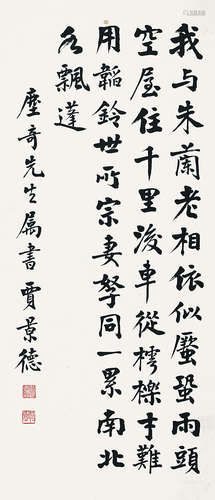 我与朱蘭老相依似蟨蛩兩頭
空屋住千里後車從樗櫟才難
用韜鈴世所宗妻孥同一累南北
各飄蓬
塵奇先生属書 賈景德